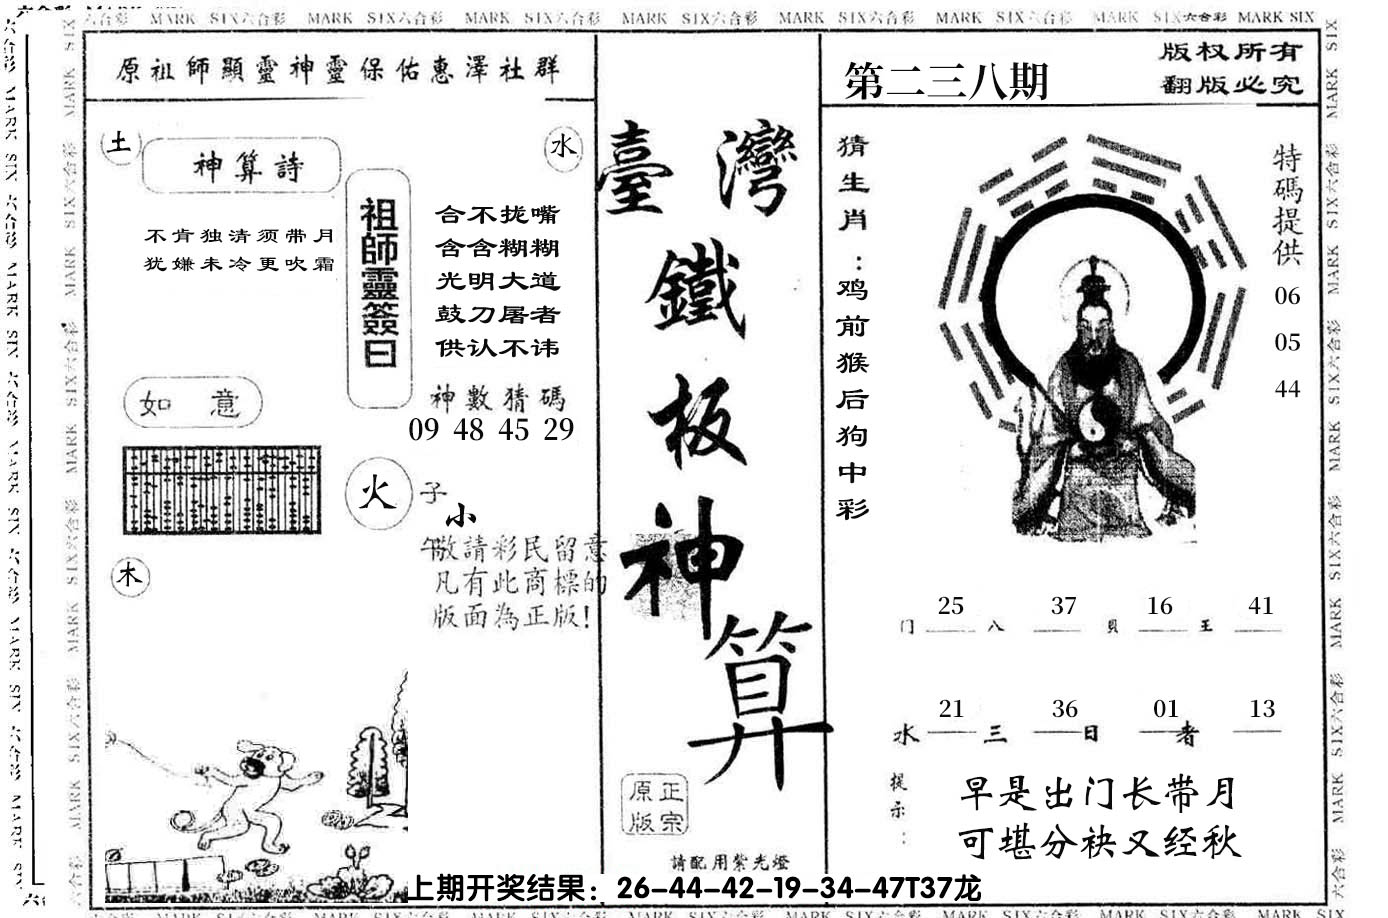 六合彩 MARK SIX六合彩 MARK SIX六合彩 MARK SIX六合彩 MARK SIX六合彩 MARK SIX六合彩 MARK SIX六合彩 MARK SIX六合彩 MARK SIX
原祖師顯靈神靈保佑惠澤社群
土
神算詩
水
不肯独清须带月
犹嫌未冷更吹霜
祖師靈簽曰
合不拢嘴
含含糊糊
光明大道
鼓刀屠者
供认不讳
神數猜碼
09 48 45 29
如意
火
子
小
午
敬請彩民留意
凡有此商標的
版面為正版!
木
臺灣
鐵板神算
正宗
原版
請配用紫光燈
第二三八期
版权所有
翻版必究
猜生肖：鸡前猴后狗中彩
特碼提供
06
05
44
门 25 八 37 貝 16 王 41
水 21 三 36 日 01 者 13
提示：
早是出门长带月
可堪分袂又经秋
上期开奖结果：26-44-42-19-34-47T37龙